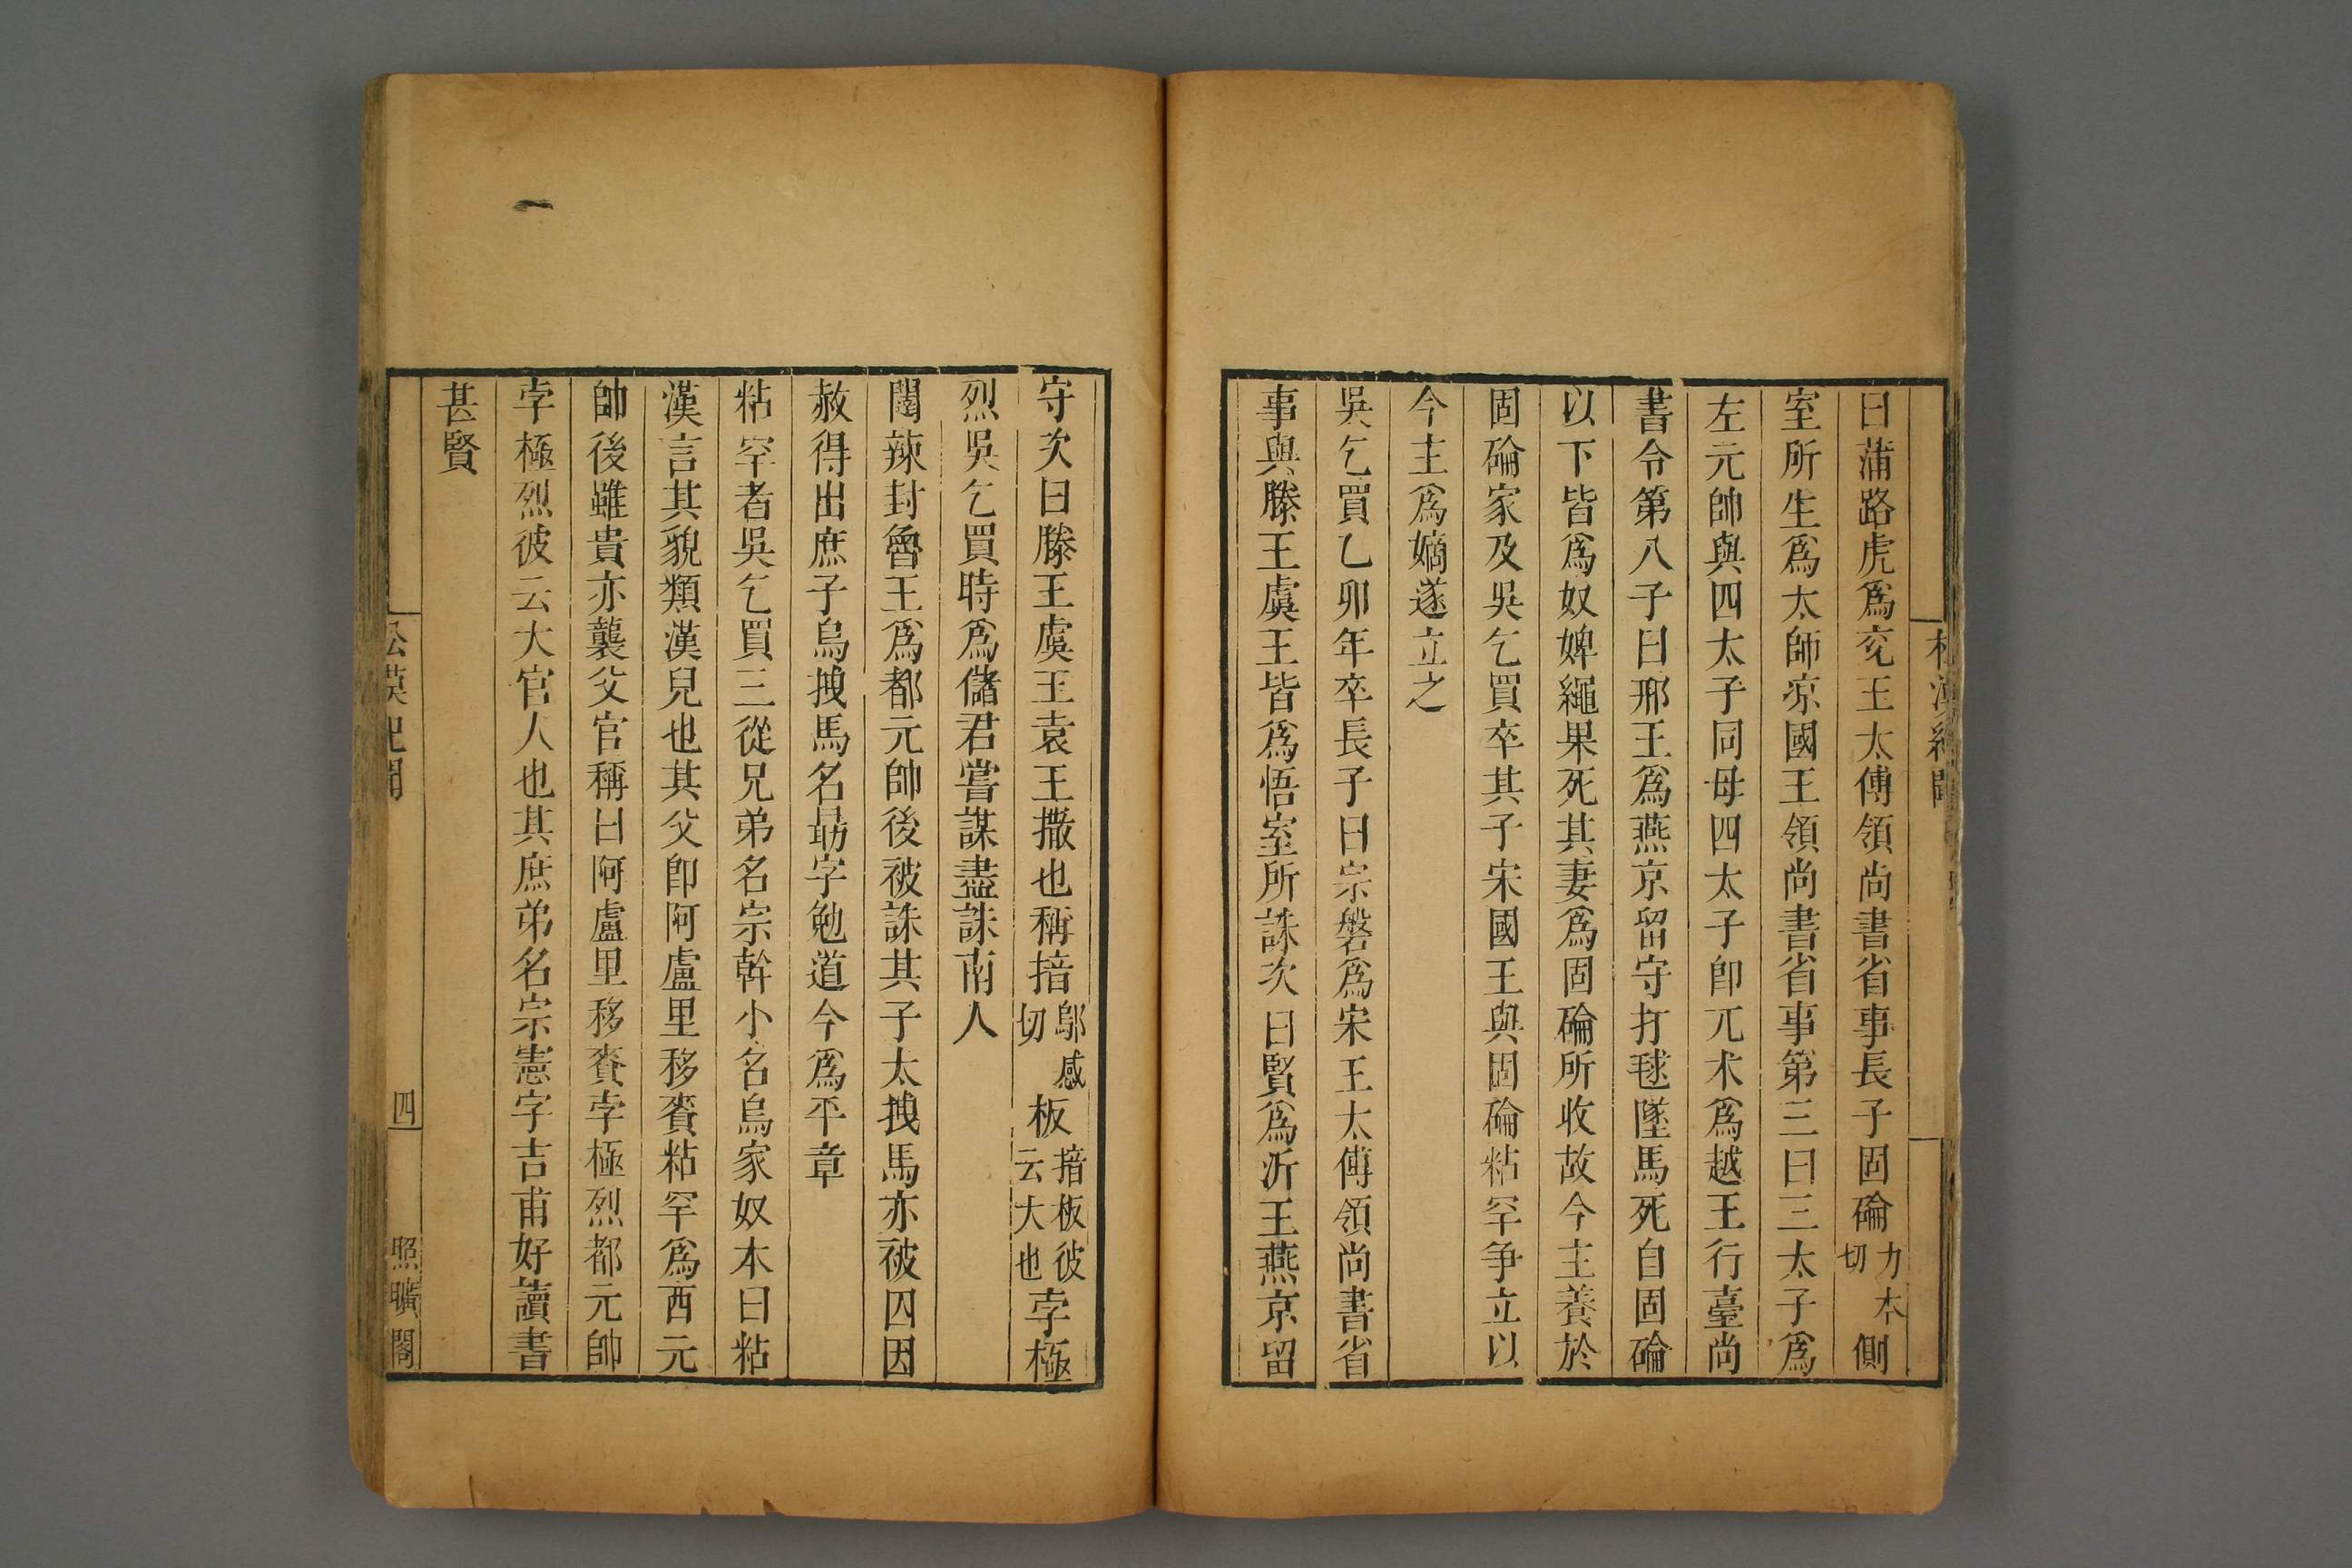 曰蒲路虎爲兗王太傅領尚書省事長子固碖力本切側
室所生爲太師凉國王領尚書省事第三曰三太子爲
左元帥與四太子同母四太子卽兀术爲越王行臺尚
書令第八子曰邢王爲燕京留守打毬墜馬死自固碖
以下皆爲奴婢繩果死其妻爲固碖所收故今主養於
固碖家及吳乞買卒其子宋國王與固碖粘罕争立以
今主爲嫡遂立之
吳乞買乙卯年卒長子曰宗磐爲宋王太傅領尚書省
事與滕王虞王皆爲悟室所誅次曰賢爲沂王燕京留
守次曰滕王虞王袁王撒也稱揞鄔感切板揞板彼云大也孛極
烈吳乞買時爲儲君嘗謀盡誅南人
闥辣封魯王爲都元帥後被誅其子太拽馬亦被囚因
赦得出庶子烏拽馬名勗字勉道今爲平章
粘罕者吳乞買三從兄弟名宗幹小名烏家奴本曰粘
漢言其貌類漢兒也其父卽阿盧里移賚粘罕爲西元
帥後雖貴亦襲父官稱曰阿盧里移賚孛極烈都元帥
孛極烈彼云大官人也其庶弟名宗憲字吉甫好讀書
甚賢
松漠紀聞
四
照曠閣